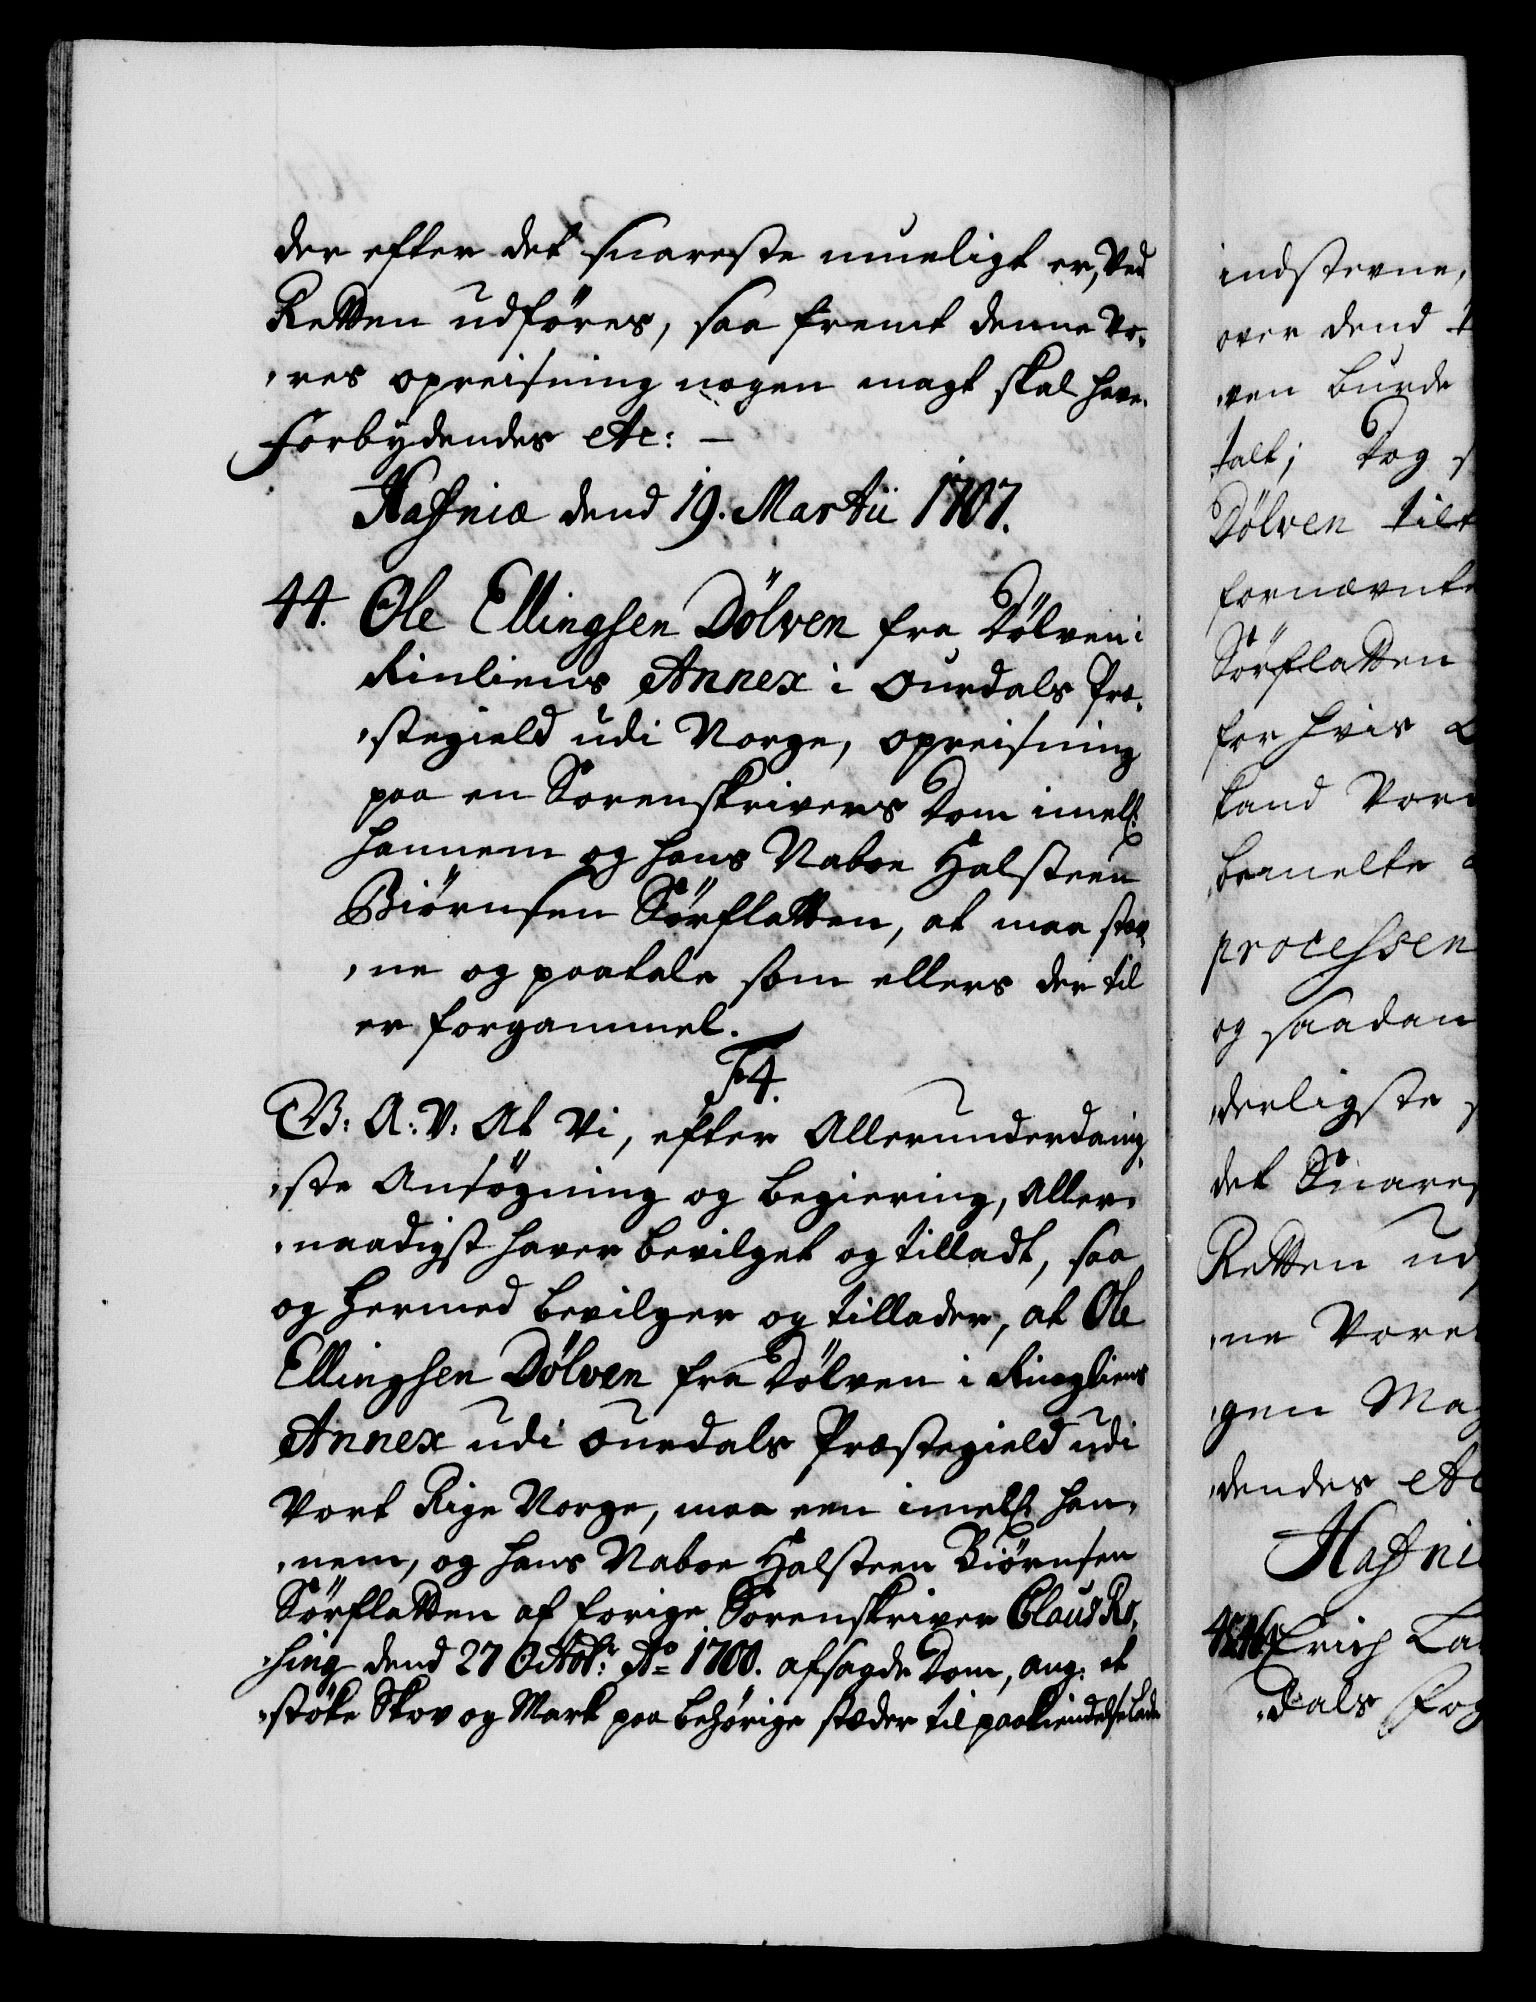 der efter det snareste mueligt er, Ved
Retten udföres, saa fremt denne Vo-
res opreisning nogen magt skal have.
Forbydendes etc: —
Hafniæ dend 19. Martii 1707.
44. Ole Ellingsen Dölven fra Dölven i
Rinliens Annex i Ourdals Præ-
stegield udi Norge, opreisning
paa en Sorenskrivers Dom imell:
hannem og hans Naboe Halsteen
Biörnsen Sörflatten, at maa stev-
ne og paatale som ellers der til
er forgammel.
F4.
G: A: V: At Vi, efter Allerunderdanig-
ste Ansögning og begiering, Aller-
naadigst haver bevilget og tilladt, saa
og hermed bevilger og tillader, at Ole
Ellingsen Dölven fra Dölven i Ringliens
Annex udi Ourdals Præstegield udi
Vort Rige Norge, maa een imell: han-
nem, og hans Naboe Halsteen Biörnsen
Sörflatten af forige Sorenskriver Claus Rö-
sing dend 27 Octobr: Ao 1700. afsagde Dom, ang: et
støke Skov og Mark paa behörige stæder til paakiendelse lade
indstevne,
over dend
ven burde
talt; Dog
Dölven tilt
fornævnte
Sörflatten
for hvis
kand Vor
bemelte
processen
og saadan
derligste
det Snares
Retten ud
ne Vores
gen Mag
dendes etc
Hafni
Erich La
dals Fog